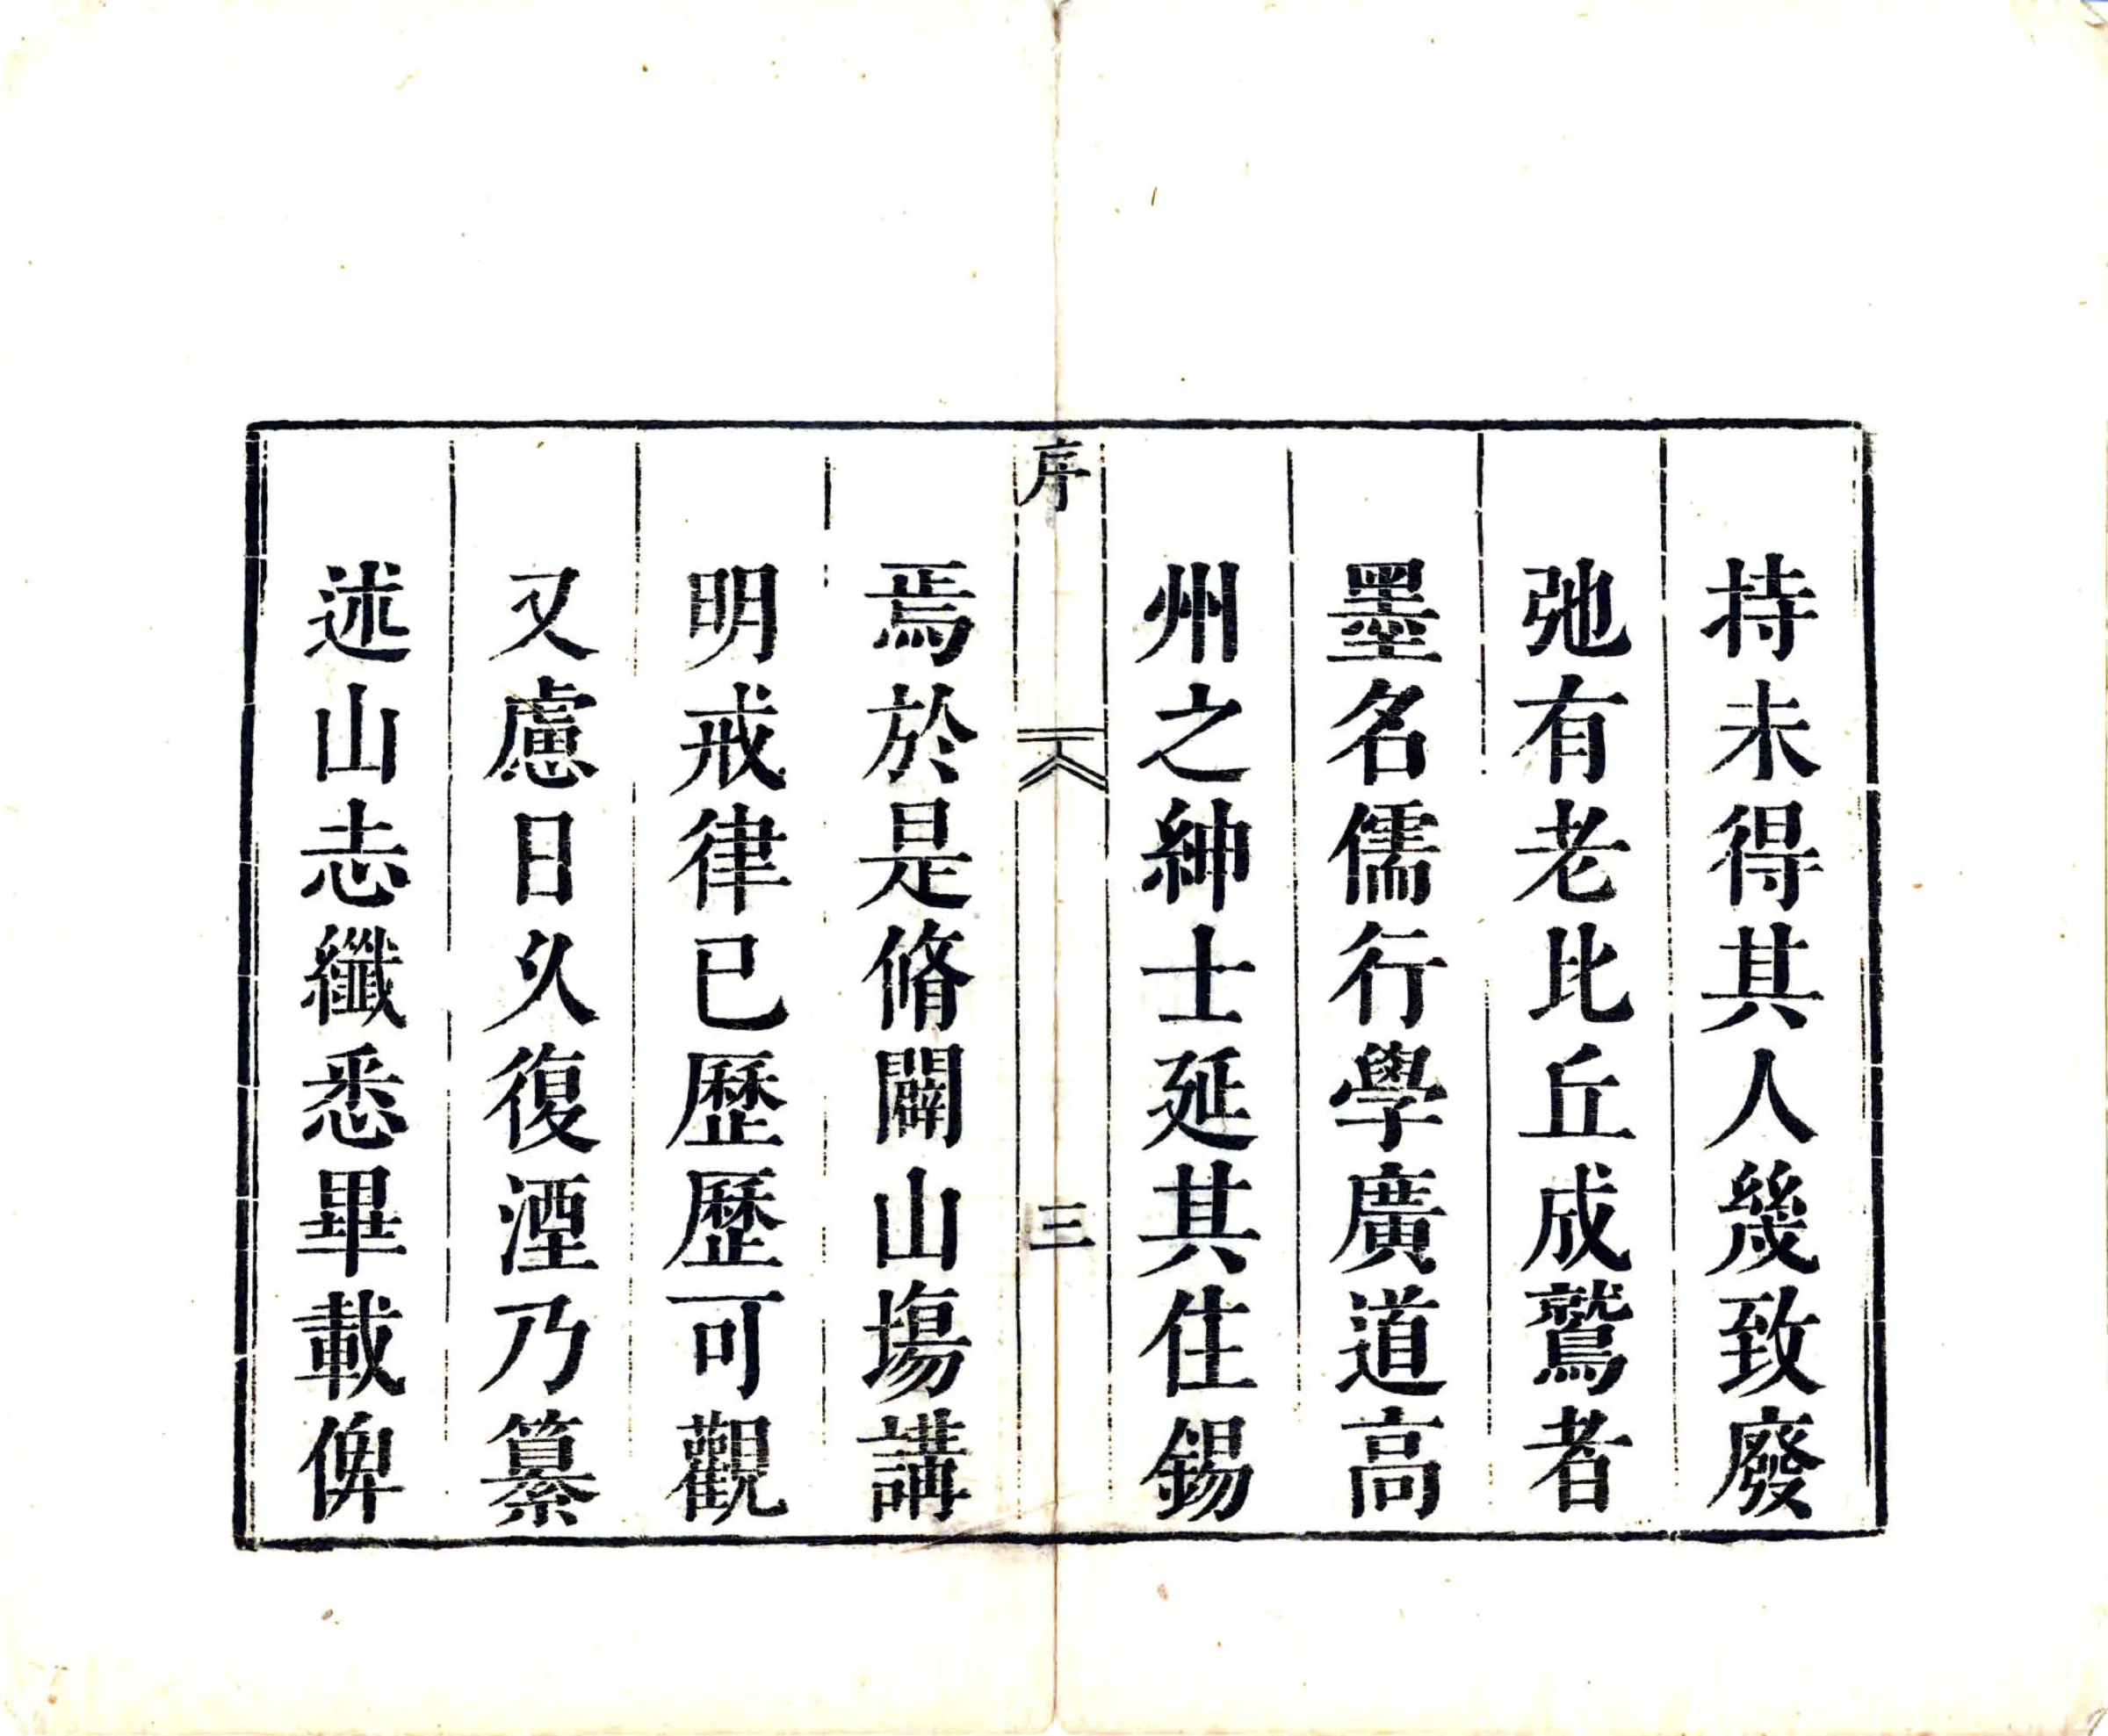 持未得其人幾致廢
弛有老比丘成鷲者
墨名儒行學廣道高
州之紳士延其住錫
序
三
焉於是脩闢山塲講
明戒律已歷歷可觀
又慮日久復湮乃纂
述山志纖悉畢載俾